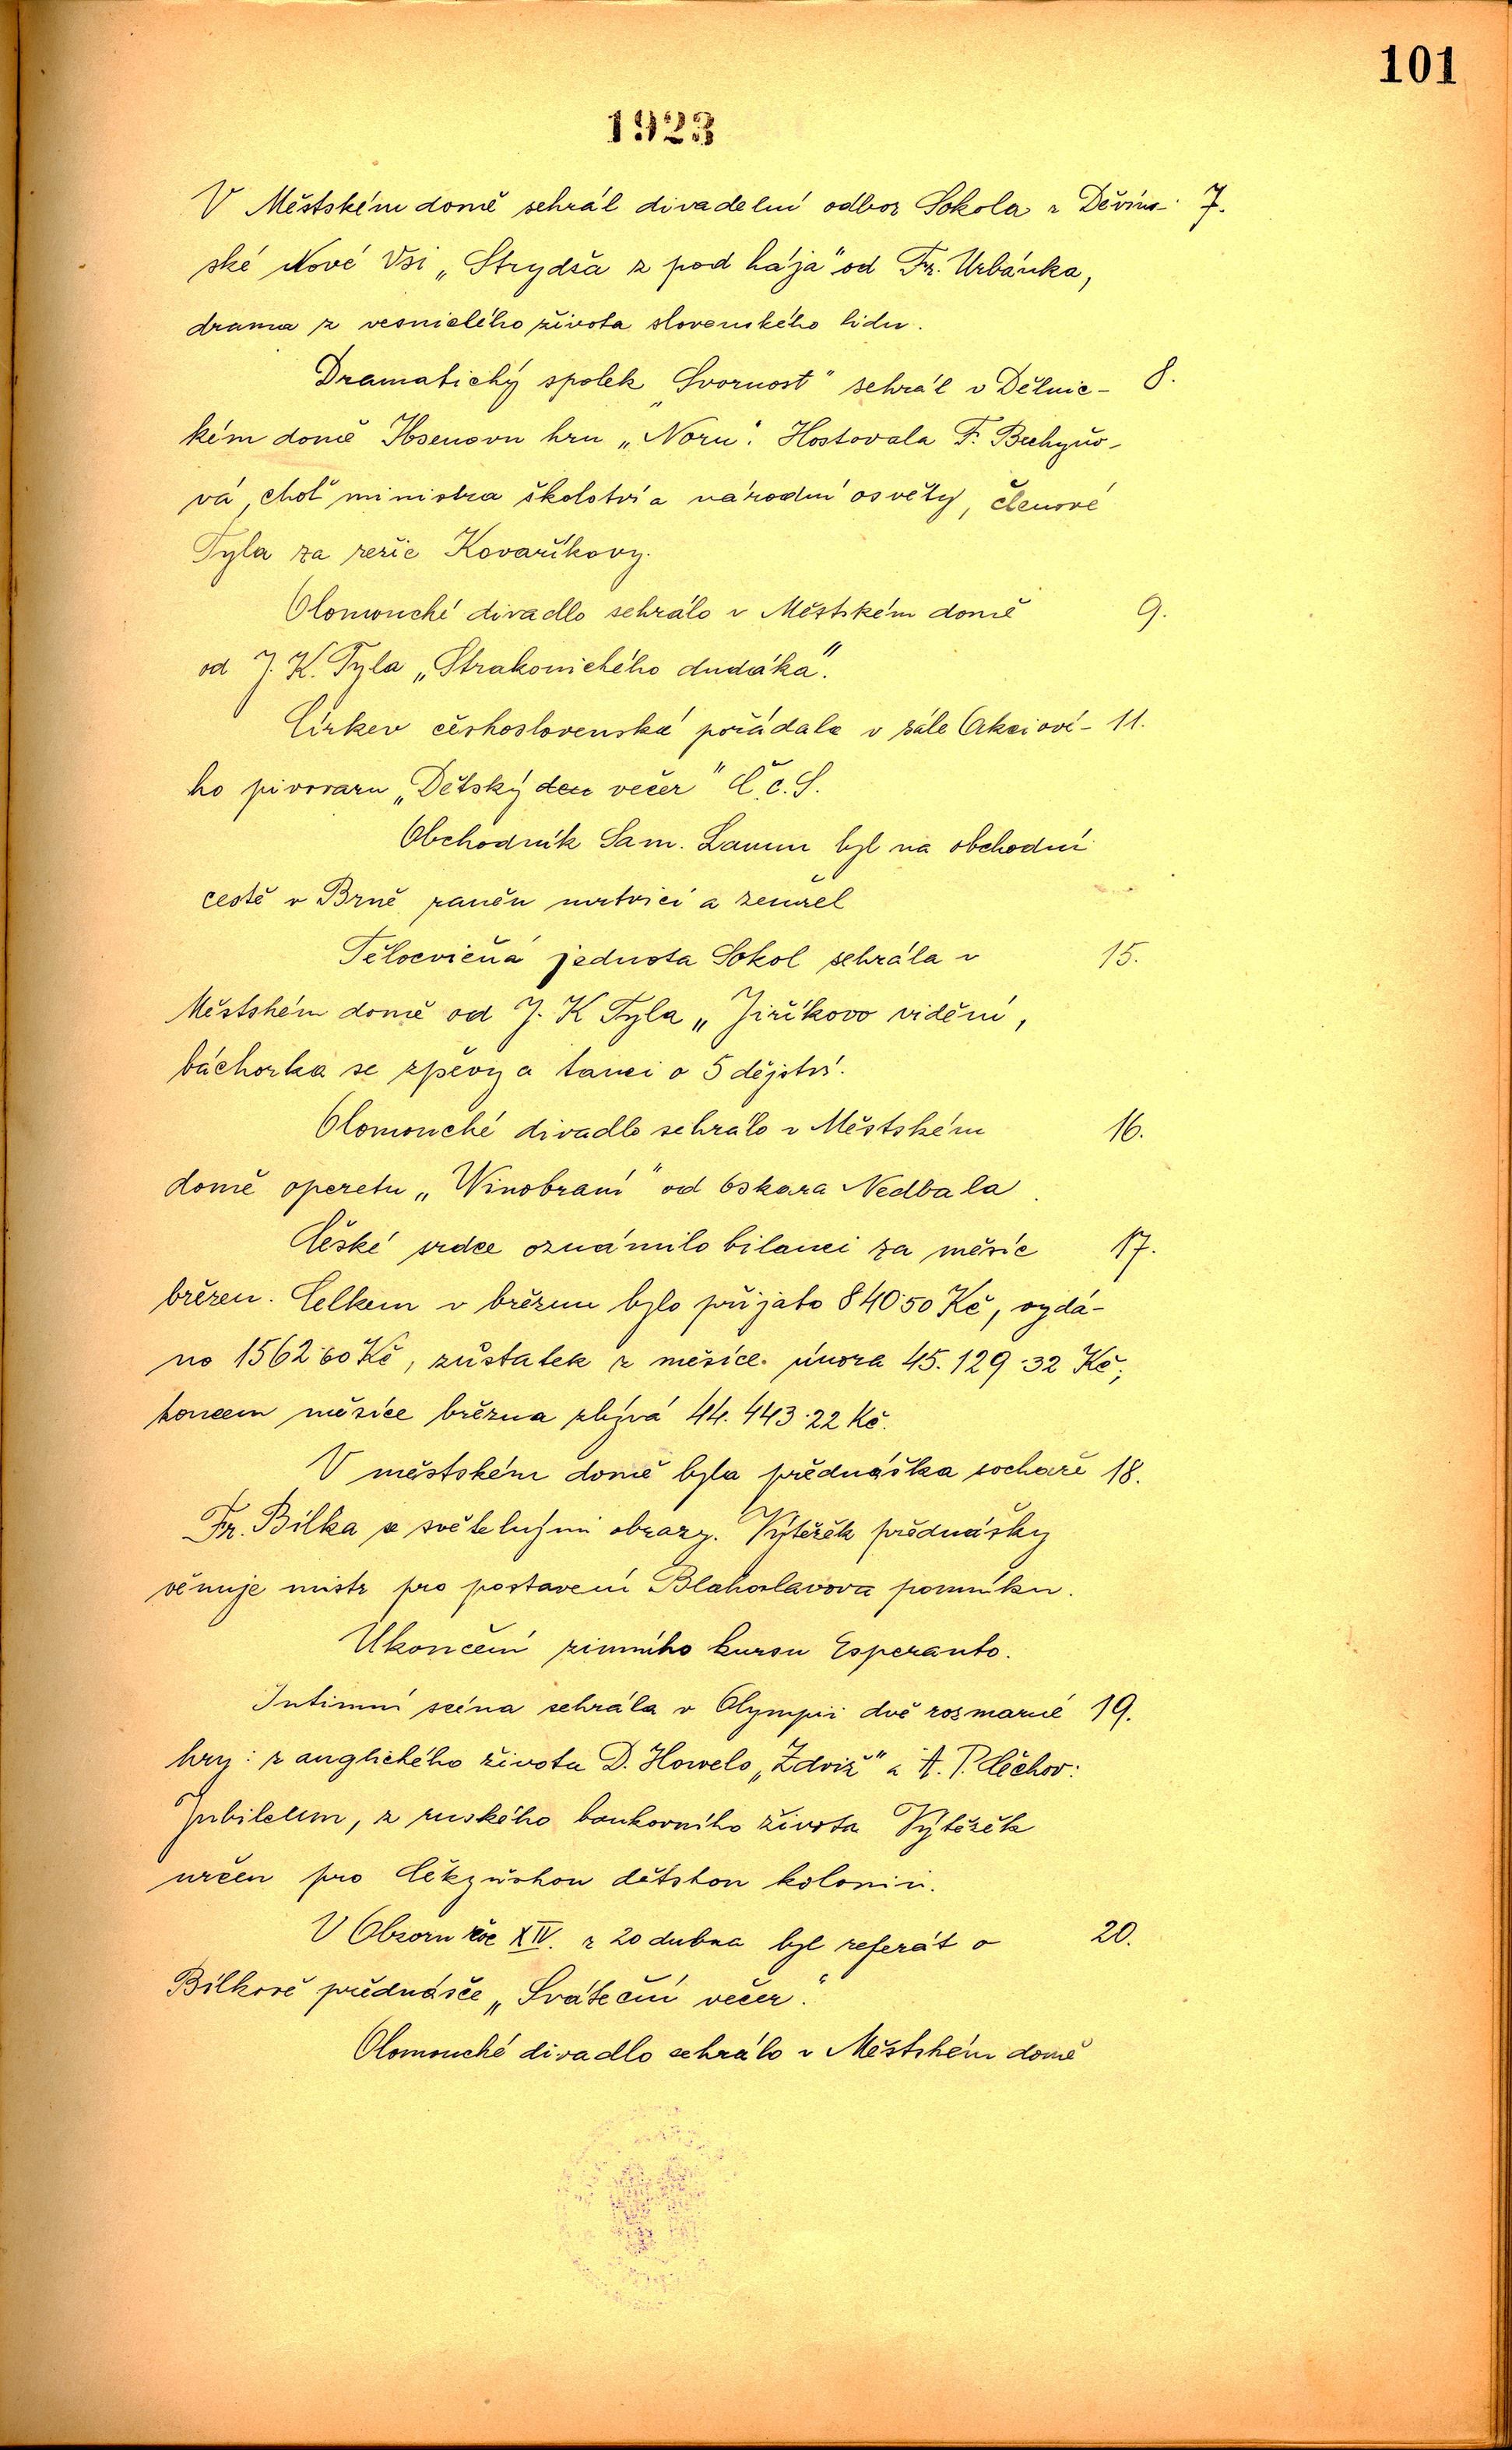 101
1923
V Městském domě sehrál divadelní odbor Sokola z Děvíns- 7.
ské Nové Vsi „Strydža z pod hája" od Fr. Urbánka,
drama z vesnického života slovenského lidu.
Dramatický spolek „Svornost" sehrál v Dělnic- 8.
kém domě Ibsenovu hru „Noru". Hostovala F. Bechyňo-
vá, choť ministra školství a národní osvěty, členové
Tyla za režie Kovaříkovy.
Olomoucké divadlo sehrálo v Městském domě 9.
od J. K. Tyla „Strakonického dudáka".
Církev československá pořádala v sále Akciové- 11.
ho pivovaru „Dětský den večer" C.č.S.
Obchodník Sam. Lamm byl na obchodní
cestě v Brně raněn mrtvicí a zemřel
Tělocvičná jednota Sokol sehrála v 15.
Městském domě od J. K Tyla „Jiříkovo vidění,
báchorka se zpěvy a tanci o 5 dějství.
Olomoucké divadlo sehrálo v Městském 16.
domě operetu „Winobraní" od Oskara Nedbala.
České srdce oznámilo bilanci za měsíc 17.
březen. Celkem v březnu bylo přijato 840·50 Kč, vydá-
no 1562·60 Kč, zůstatek z měsíce února 45.129·32 Kč;
koncem měsíce března zbývá 44.443·22 Kč.
V městském domě byla přednáška sochaře 18.
Fr. Bílka se světelnými obrazy. Výtěžek přednášky
věnuje mistr pro postavení Blahoslavova pomníku.
Ukončení zimního kursu Esperanto.
Intimní scéna sehrála v Olympii dvě rozmarné 19.
hry: z anglického života D. Howelo „Zdviž" a A. P. Čěchov:
Jubileum, z ruského bankovního života Výtěžek
určen pro Čekyňskou dětskou kolonii.
V Obzoru roč XIV. z 20 dubna byl referát o 20.
Bílkově přednášce „Sváteční večer."
Olomoucké divadlo sehrálo v Městském domě